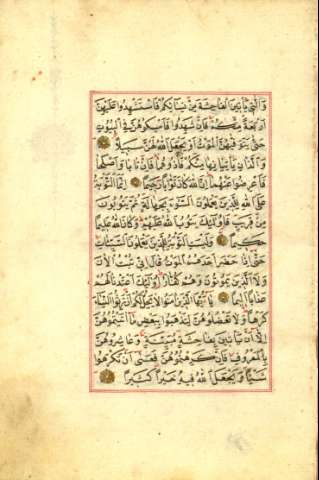 وَالّٰتِي يَأْتِينَ الْفَاحِشَةَ مِنْ نِسَائِكُمْ فَاسْتَشْهِدُوا عَلَيْهِنَّ
أَرْبَعَةً مِنْكُمْ فَإِنْ شَهِدُوا فَأَمْسِكُوهُنَّ فِي الْبُيُوتِ
حَتّٰى يَتَوَفّٰيهُنَّ الْمَوْتُ أَوْ يَجْعَلَ اللهُ لَهُنَّ سَبِيلًا
وَالَّذَانِ يَأْتِيَانِهَا مِنْكُمْ فَآذُوهُمَا فَإِنْ تَابَا وَأَصْلَحَا
فَأَعْرِضُوا عَنْهُمَا إِنَّ اللهَ كَانَ تَوَّابًا رَحِيمًا إِنَّمَا التَّوْبَةُ
عَلَى اللهِ لِلَّذِينَ يَعْمَلُونَ السُّوءَ بِجَهَالَةٍ ثُمَّ يَتُوبُونَ
مِنْ قَرِيبٍ فَأُولٰئِكَ يَتُوبُ اللهُ عَلَيْهِمْ وَكَانَ اللهُ عَلِيمًا
حَكِيمًا وَلَيْسَتِ التَّوْبَةُ لِلَّذِينَ يَعْمَلُونَ السَّيِّئَاتِ
حَتّٰى إِذَا حَضَرَ أَحَدَهُمُ الْمَوْتُ قَالَ إِنِّي تُبْتُ الْآنَ
وَلَا الَّذِينَ يَمُوتُونَ وَهُمْ كُفَّارٌ أُولٰئِكَ أَعْتَدْنَا لَهُمْ
عَذَابًا أَلِيمًا يَا أَيُّهَا الَّذِينَ آمَنُوا لَا يَحِلُّ لَكُمْ أَنْ تَرِثُوا النِّسَاءَ
كَرْهًا وَلَا تَعْضُلُوهُنَّ لِتَذْهَبُوا بِبَعْضِ مَا آتَيْتُمُوهُنَّ
إِلَّا أَنْ يَأْتِينَ بِفَاحِشَةٍ مُبَيِّنَةٍ وَعَاشِرُوهُنَّ
بِالْمَعْرُوفِ فَإِنْ كَرِهْتُمُوهُنَّ فَعَسٰى أَنْ تَكْرَهُوا
شَيْئًا وَيَجْعَلَ اللهُ فِيهِ خَيْرًا كَثِيرًا